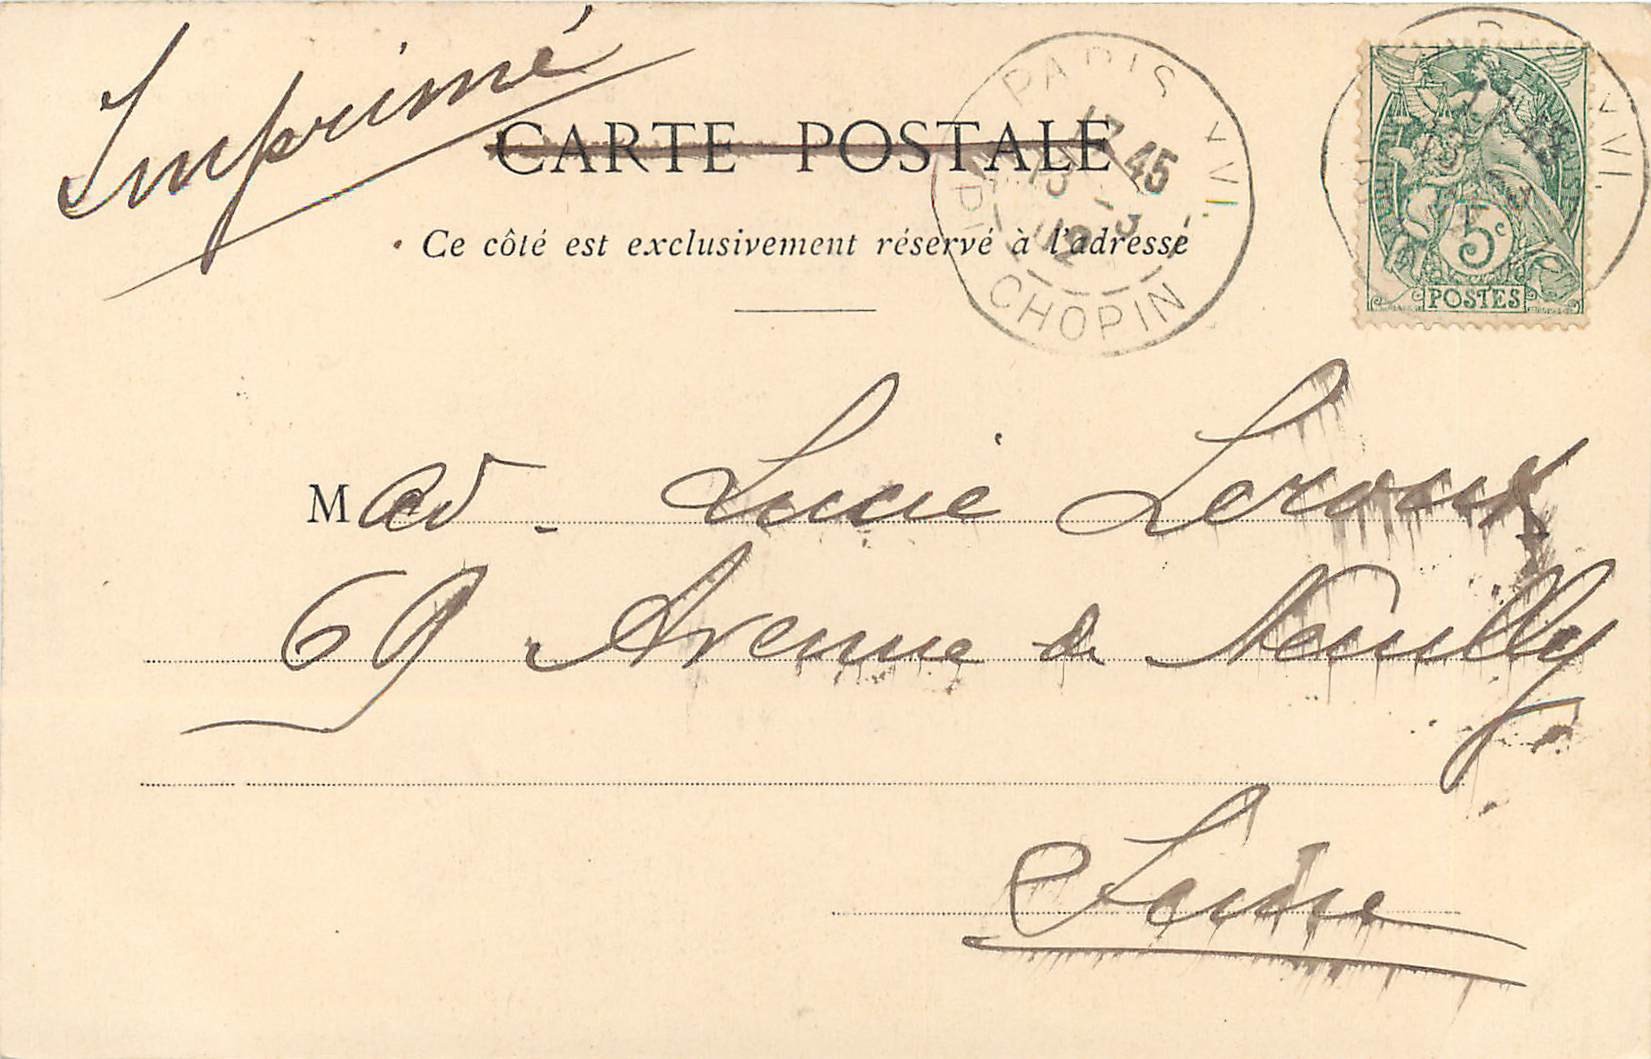 Imprimé
CARTE POSTALE
Ce côté est exclusivement réservé à l'adresse
PARIS XVI.
17 45
13 - 3
02
PL. CHOPIN
5c
POSTES
Mad. Lucie Leroux
69 Avenue de Neuilly
Seine